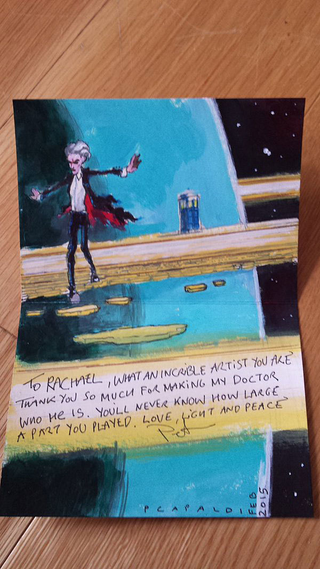 TO RACHAEL, WHAT AN INCRIBLE ARTIST YOU ARE
THANK YOU SO MUCH FOR MAKING MY DOCTOR
WHO HE IS. YOULL NEVER KNOW HOW LARGE
A PART YOU PLAYED. LOVE, LIGHT AND PEACE
PCAPALDI FEB 2015